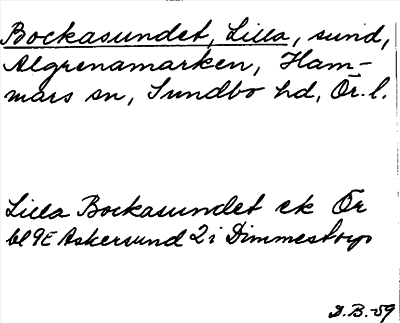 Bockasundet, Lilla, sund,
Algrenamarken, Ham-
mars sn, Sundbo hd, Ör. l.
Lilla Bockasundet ek Ör
bl 9E Askersund 2 i Dimmestorp
D.B.-59